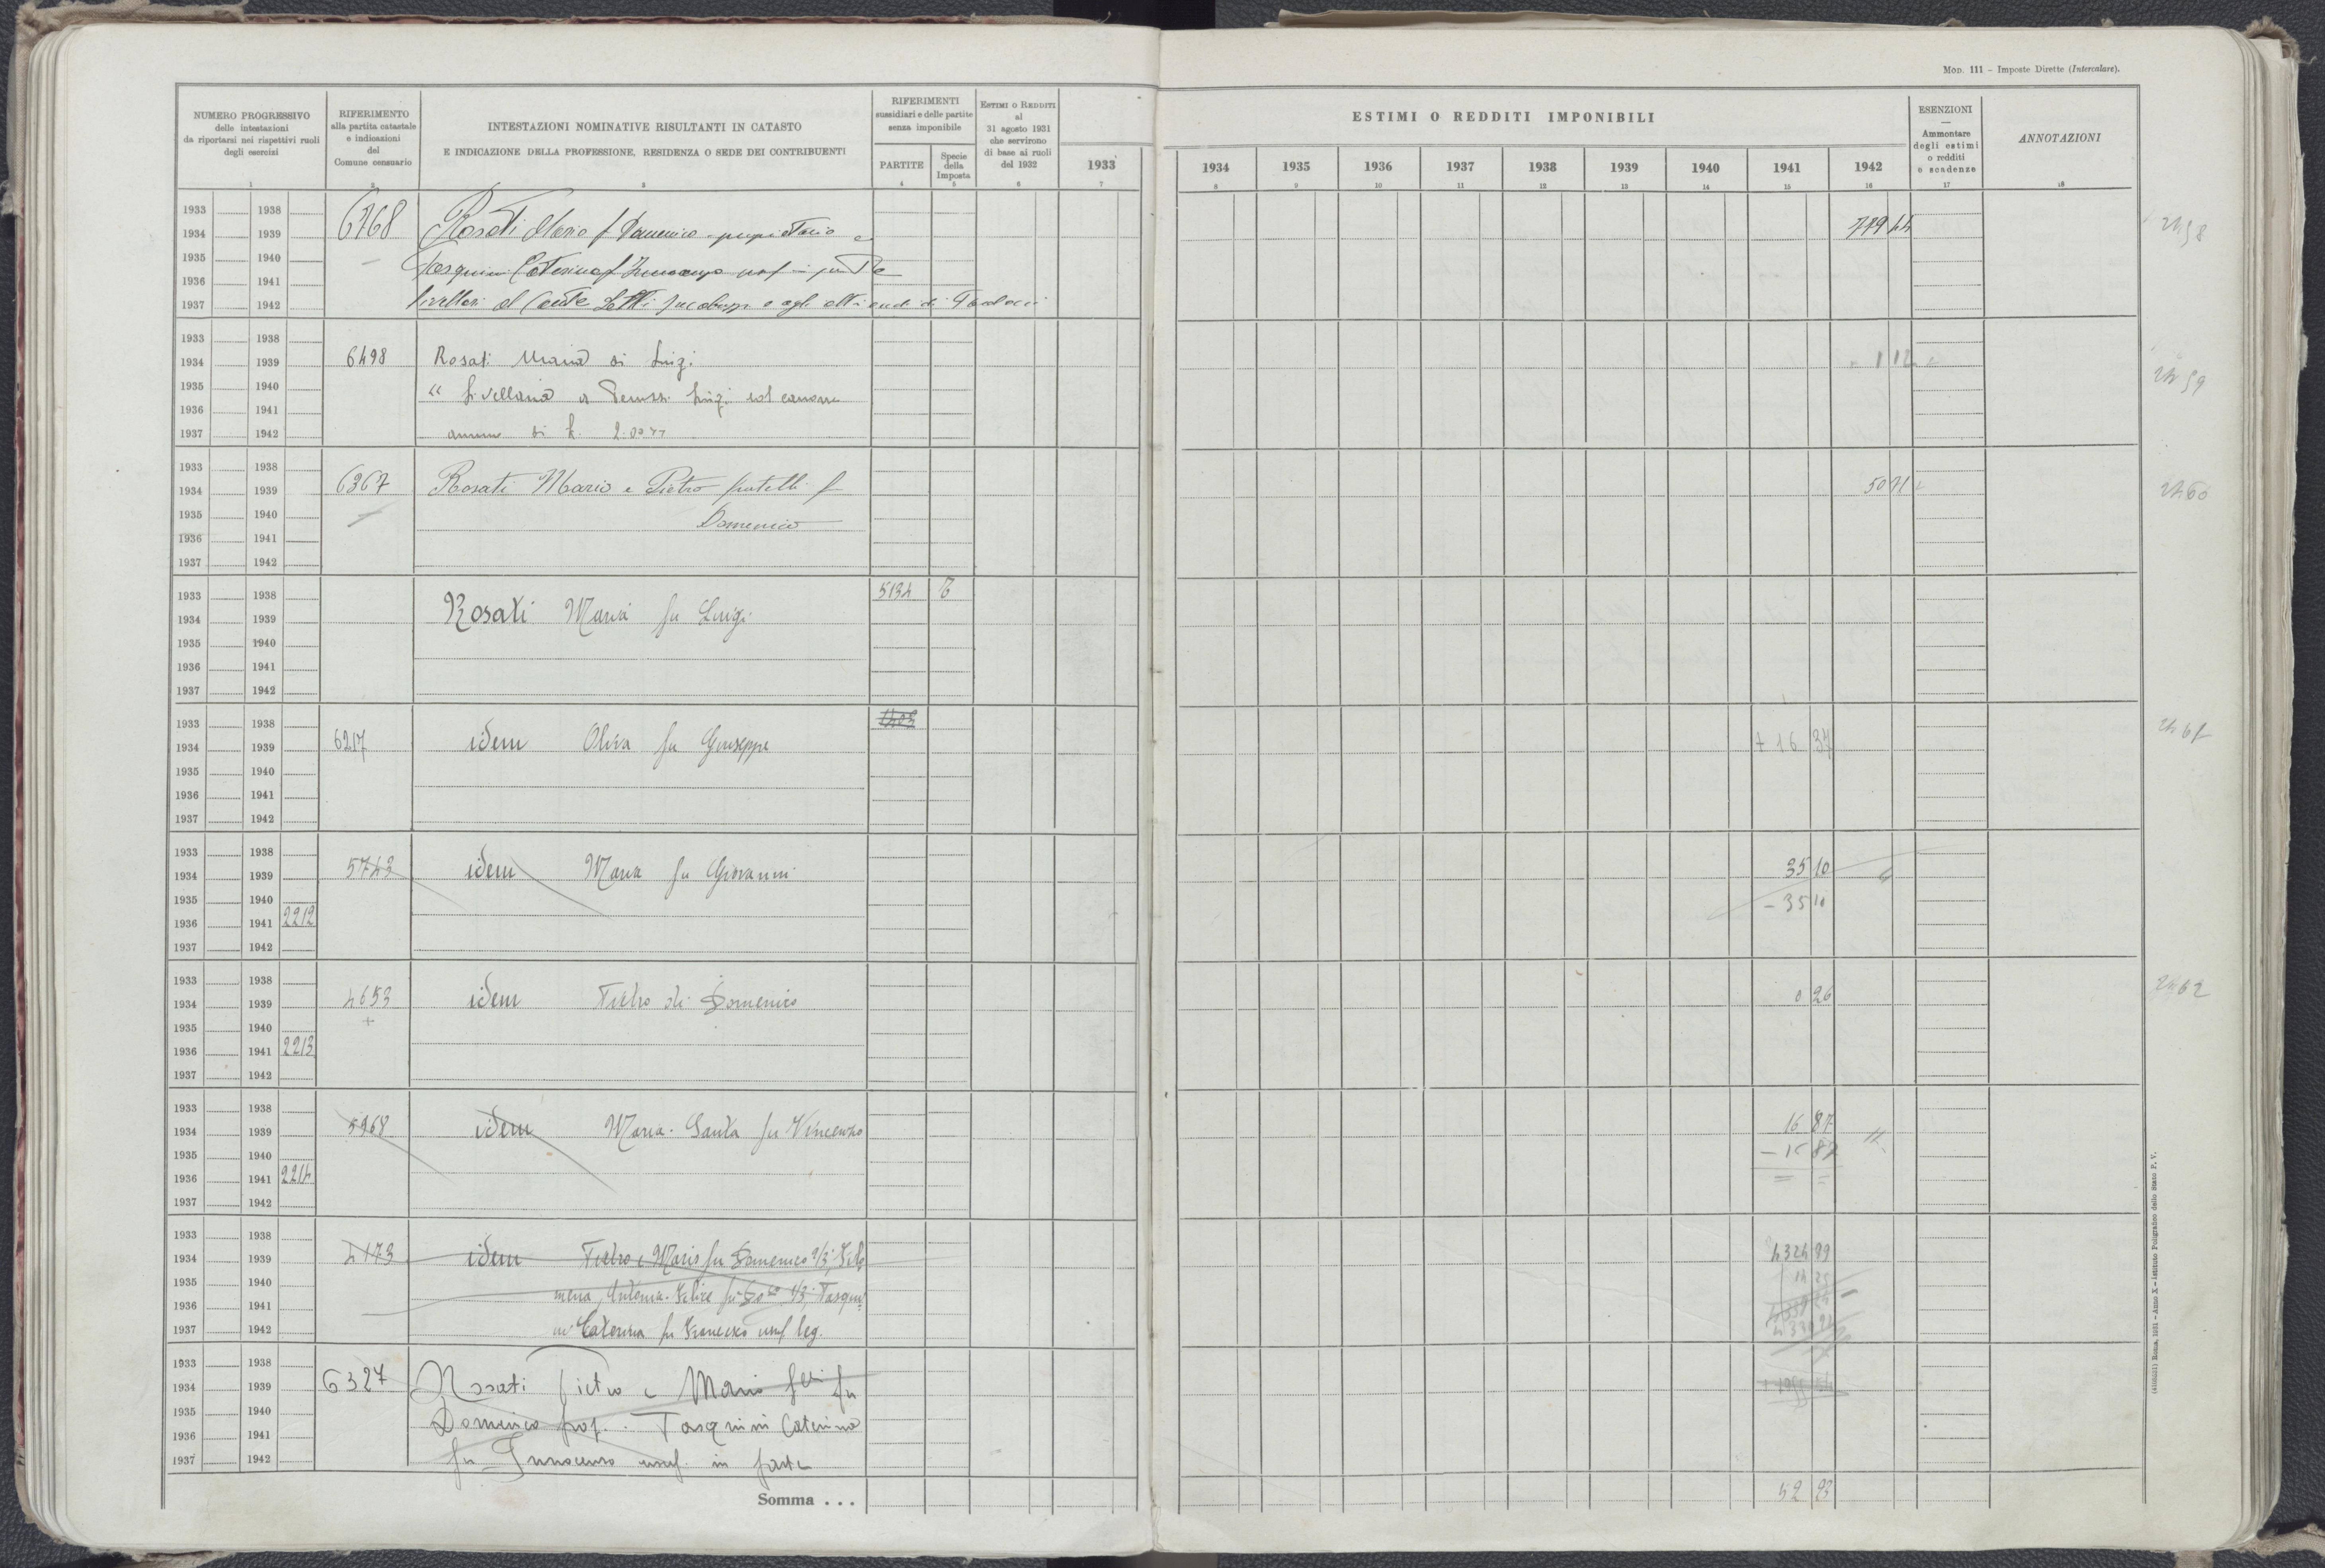 MOD. 111 – Imposte Dirette (Intercalare).
NUMERO PROGRESSIVO
delle intestazioni
da riportarsi nei rispettivi ruoli
degli esercizi
1
RIFERIMENTO
alla partita catastale
e indicazioni
del
Comune censuario
2
INTESTAZIONI NOMINATIVE RISULTANTI IN CATASTO
E INDICAZIONE DELLA PROFESSIONE, RESIDENZA O SEDE DEI CONTRIBUENTI
3
RIFERIMENTI
sussidiari e delle partite
senza imponibile
PARTITE
4
Specie
della
Imposta
5
ESTIMI O REDDITI
al
31 agosto 1931
che servirono
di base ai ruoli
del 1932
6
ESTIMI O REDDITI IMPONIBILI
1933 1934 1935 1936 1937 1938 1939 1940 1941 1942
7 8 9 10 11 12 13 14 15 16
ESENZIONI
—
Ammontare
degli estimi
o redditi
e scadenze
17
ANNOTAZIONI
18
1933 1938
1934 1939 6768 Rosati Mario f Domenico proprietario e 779 44 2458
1935 1940 Tasquini Caterina f Innocenzo usuf in
1936 1941
1937 1942 livellari al Conte
1933 1938
1934 1939 6498 Rosati Maria di Luigi 1 12 2459
1935 1940 " Livellaria a Luigi col canone
1936 1941 annuo di L.
1937 1942
1933 1938
1934 1939 6367 Rosati Mario e Pietro fratelli f 50 71 2460
1935 1940 Domenico
1936 1941
1937 1942
1933 1938 5134
1934 1939 Rosati Maria fu Luigi
1935 1940
1936 1941
1937 1942
1933 1938
1934 1939 6217 idem Oliva fu Giuseppe + 16 37 2461
1935 1940
1936 1941
1937 1942
1933 1938
1934 1939 5743 idem Maria fu Giovanni 35 10
1935 1940 – 35 10
1936 1941 2212
1937 1942
1933 1938
1934 1939 4653 idem Pietro di Domenico 0 26 2462
1935 1940 +
1936 1941 2213
1937 1942
1933 1938
1934 1939 5968 idem Maria Santa fu Vincenzo 16 87
1935 1940 – 16 87
1936 1941 2214 = =
1937 1942
1933 1938
1934 1939 4173 idem Pietro e Mario fu Domenico 2/3; Filo 4324 99
1935 1940 mena, Antonia Felice fu Do.co 1/3; Tasqui
1936 1941
1937 1942 ni Caterina fu Francesco usuf leg.
1933 1938
1934 1939 6327 Rosati Pietro e Mario flli fu
1935 1940 Domenico prop. Tasquini Caterina
1936 1941
1937 1942 fu Innocenzo usuf. in parte
Somma . . . 52 23
Roma, 1931 – Anno X – Istituto Poligrafico dello Stato P. V.